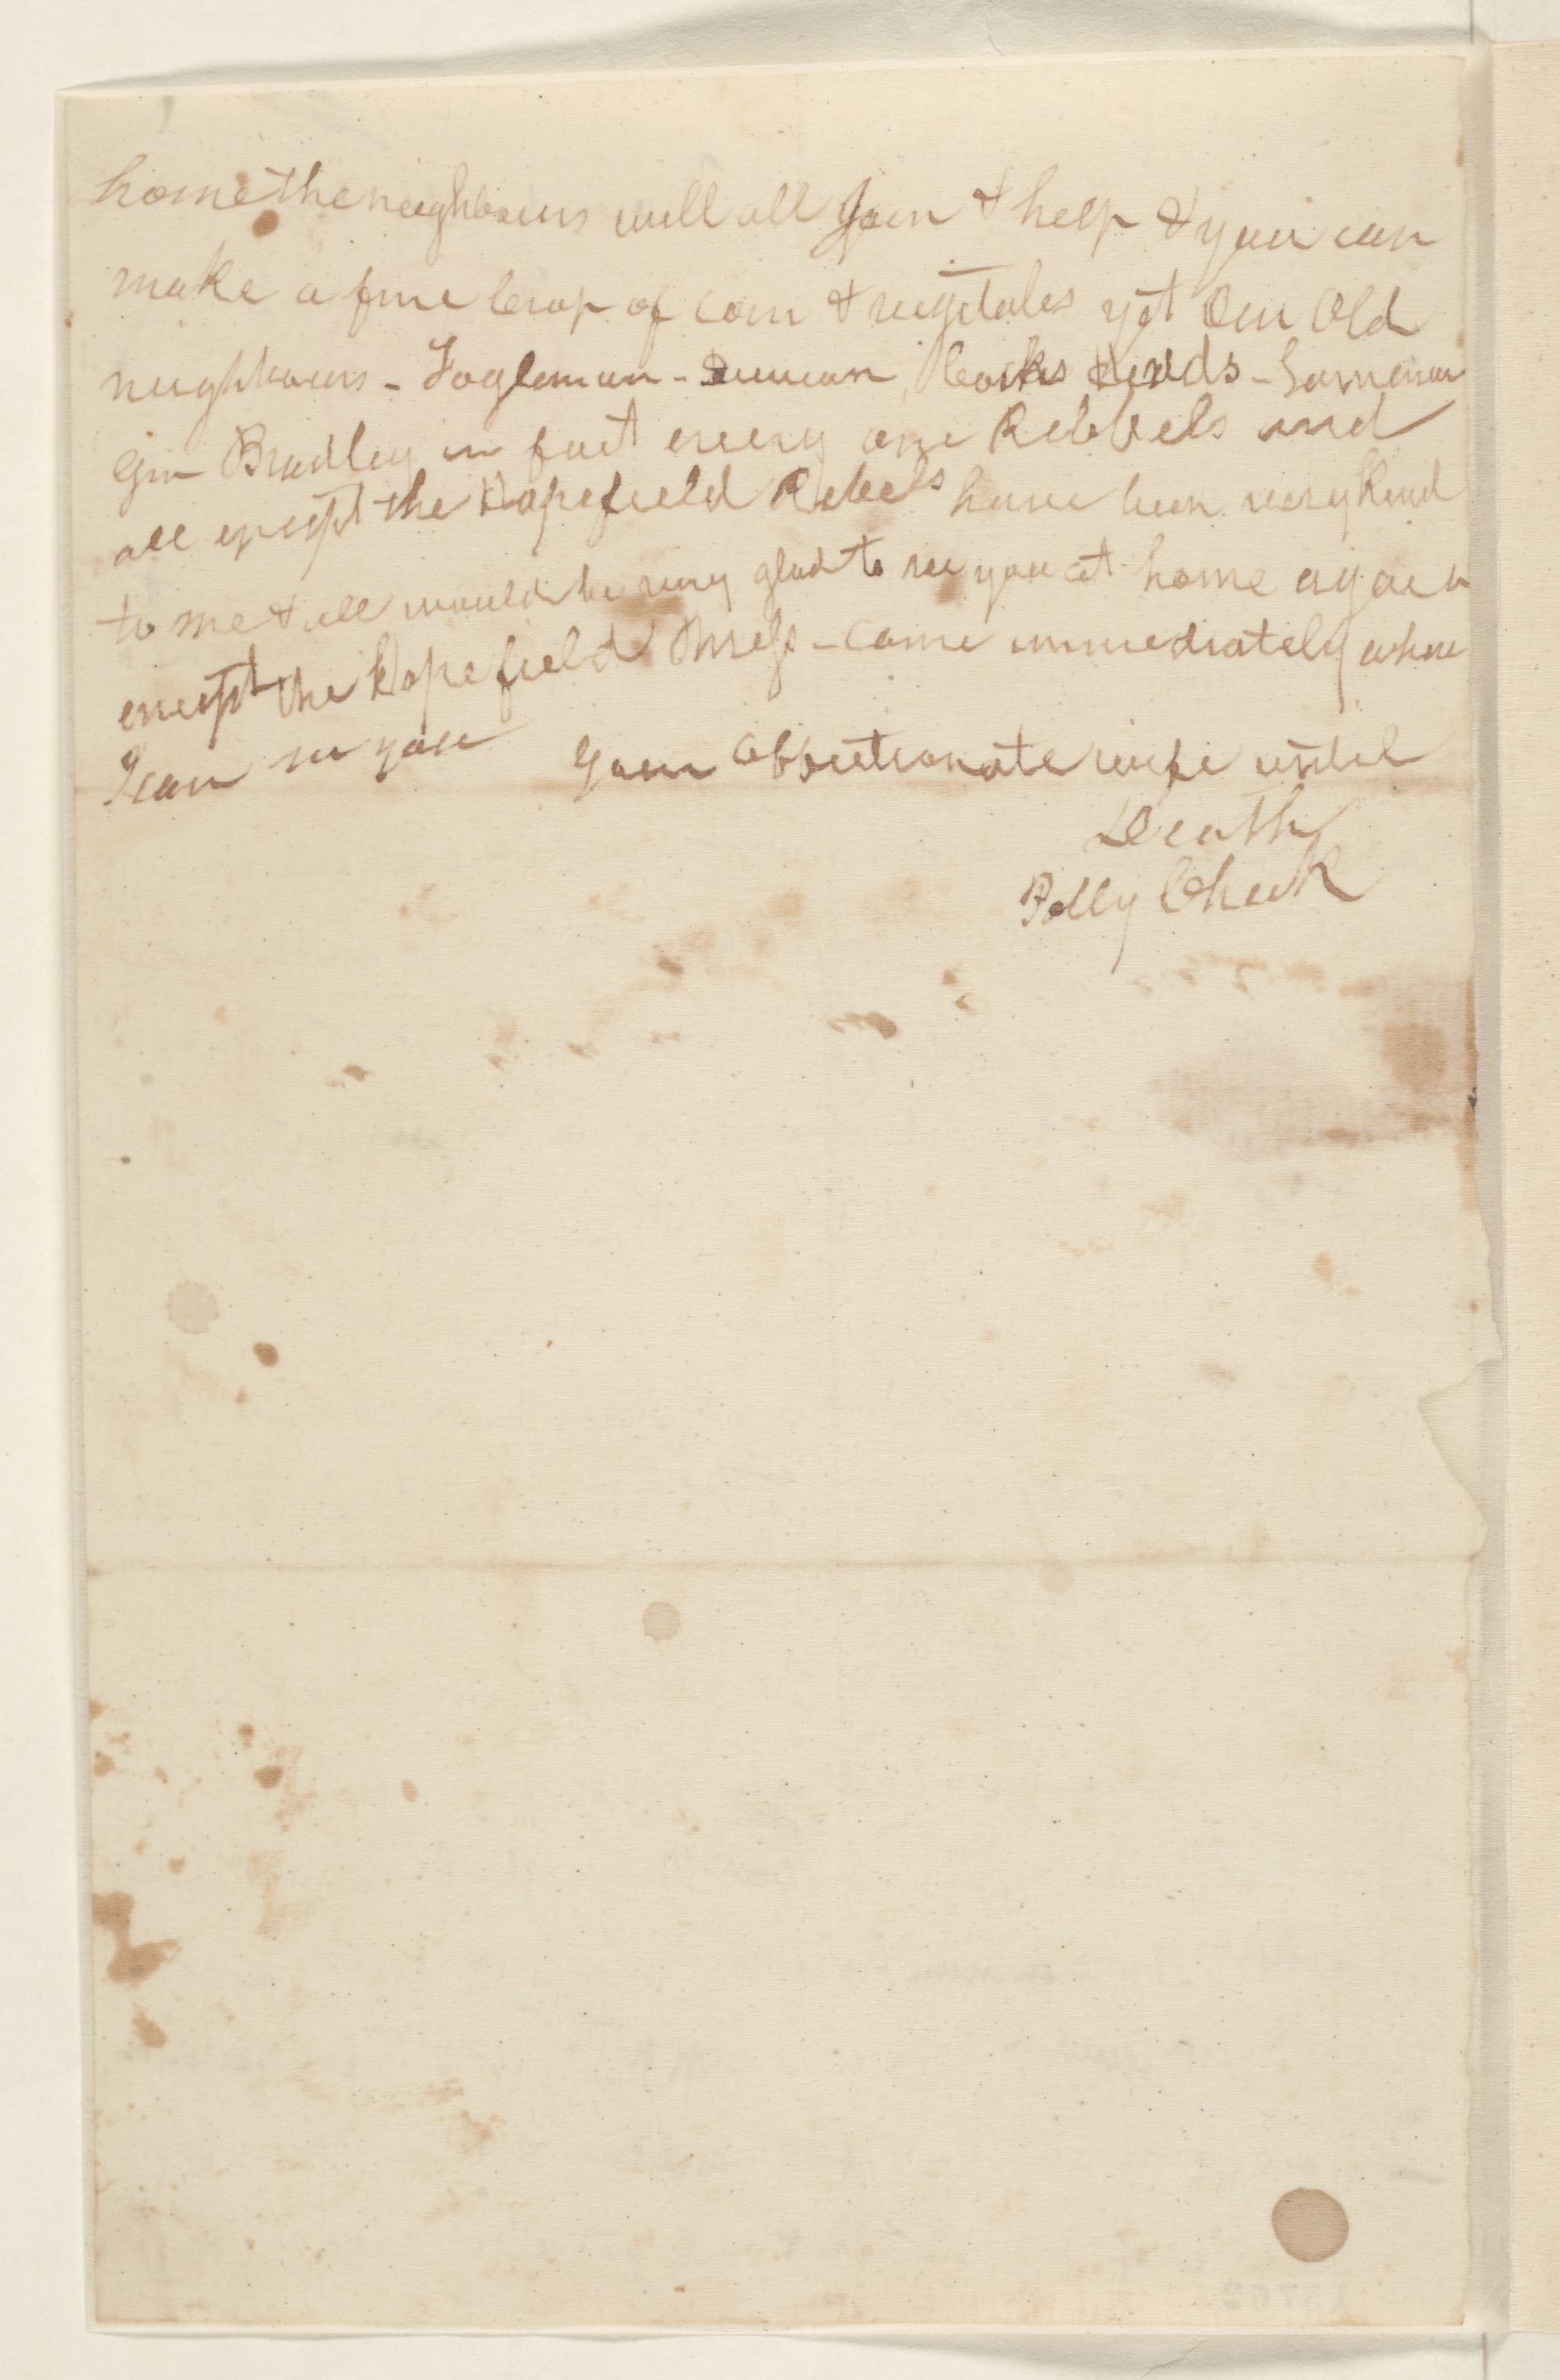 home the neighbours will all Join & help & you can
make a fine Crop of corn & vegetales yet Our Old
neighbours - Fogleman - Duncan Cooks
Gin Bradley in fact every one Rebbels and
all except the Hopefield Rebels have been very kind
to me & all would be very glad to see you at home again
except the Hopefield - come immediately where
I can see you Your Affectionate wife until
Death
Polly Cheek